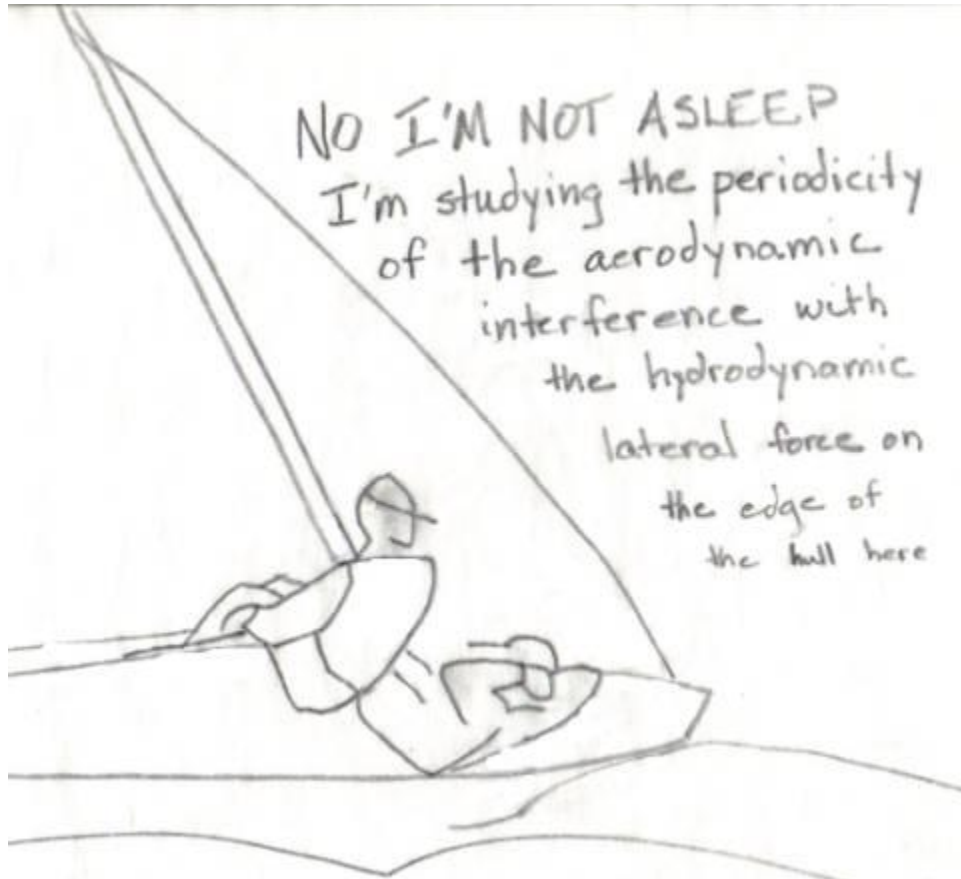 NO I'M NOT ASLEEP
I'm studying the periodicity
of the aerodynamic
interference with
the hydrodynamic
lateral force on
the edge of
the hull here